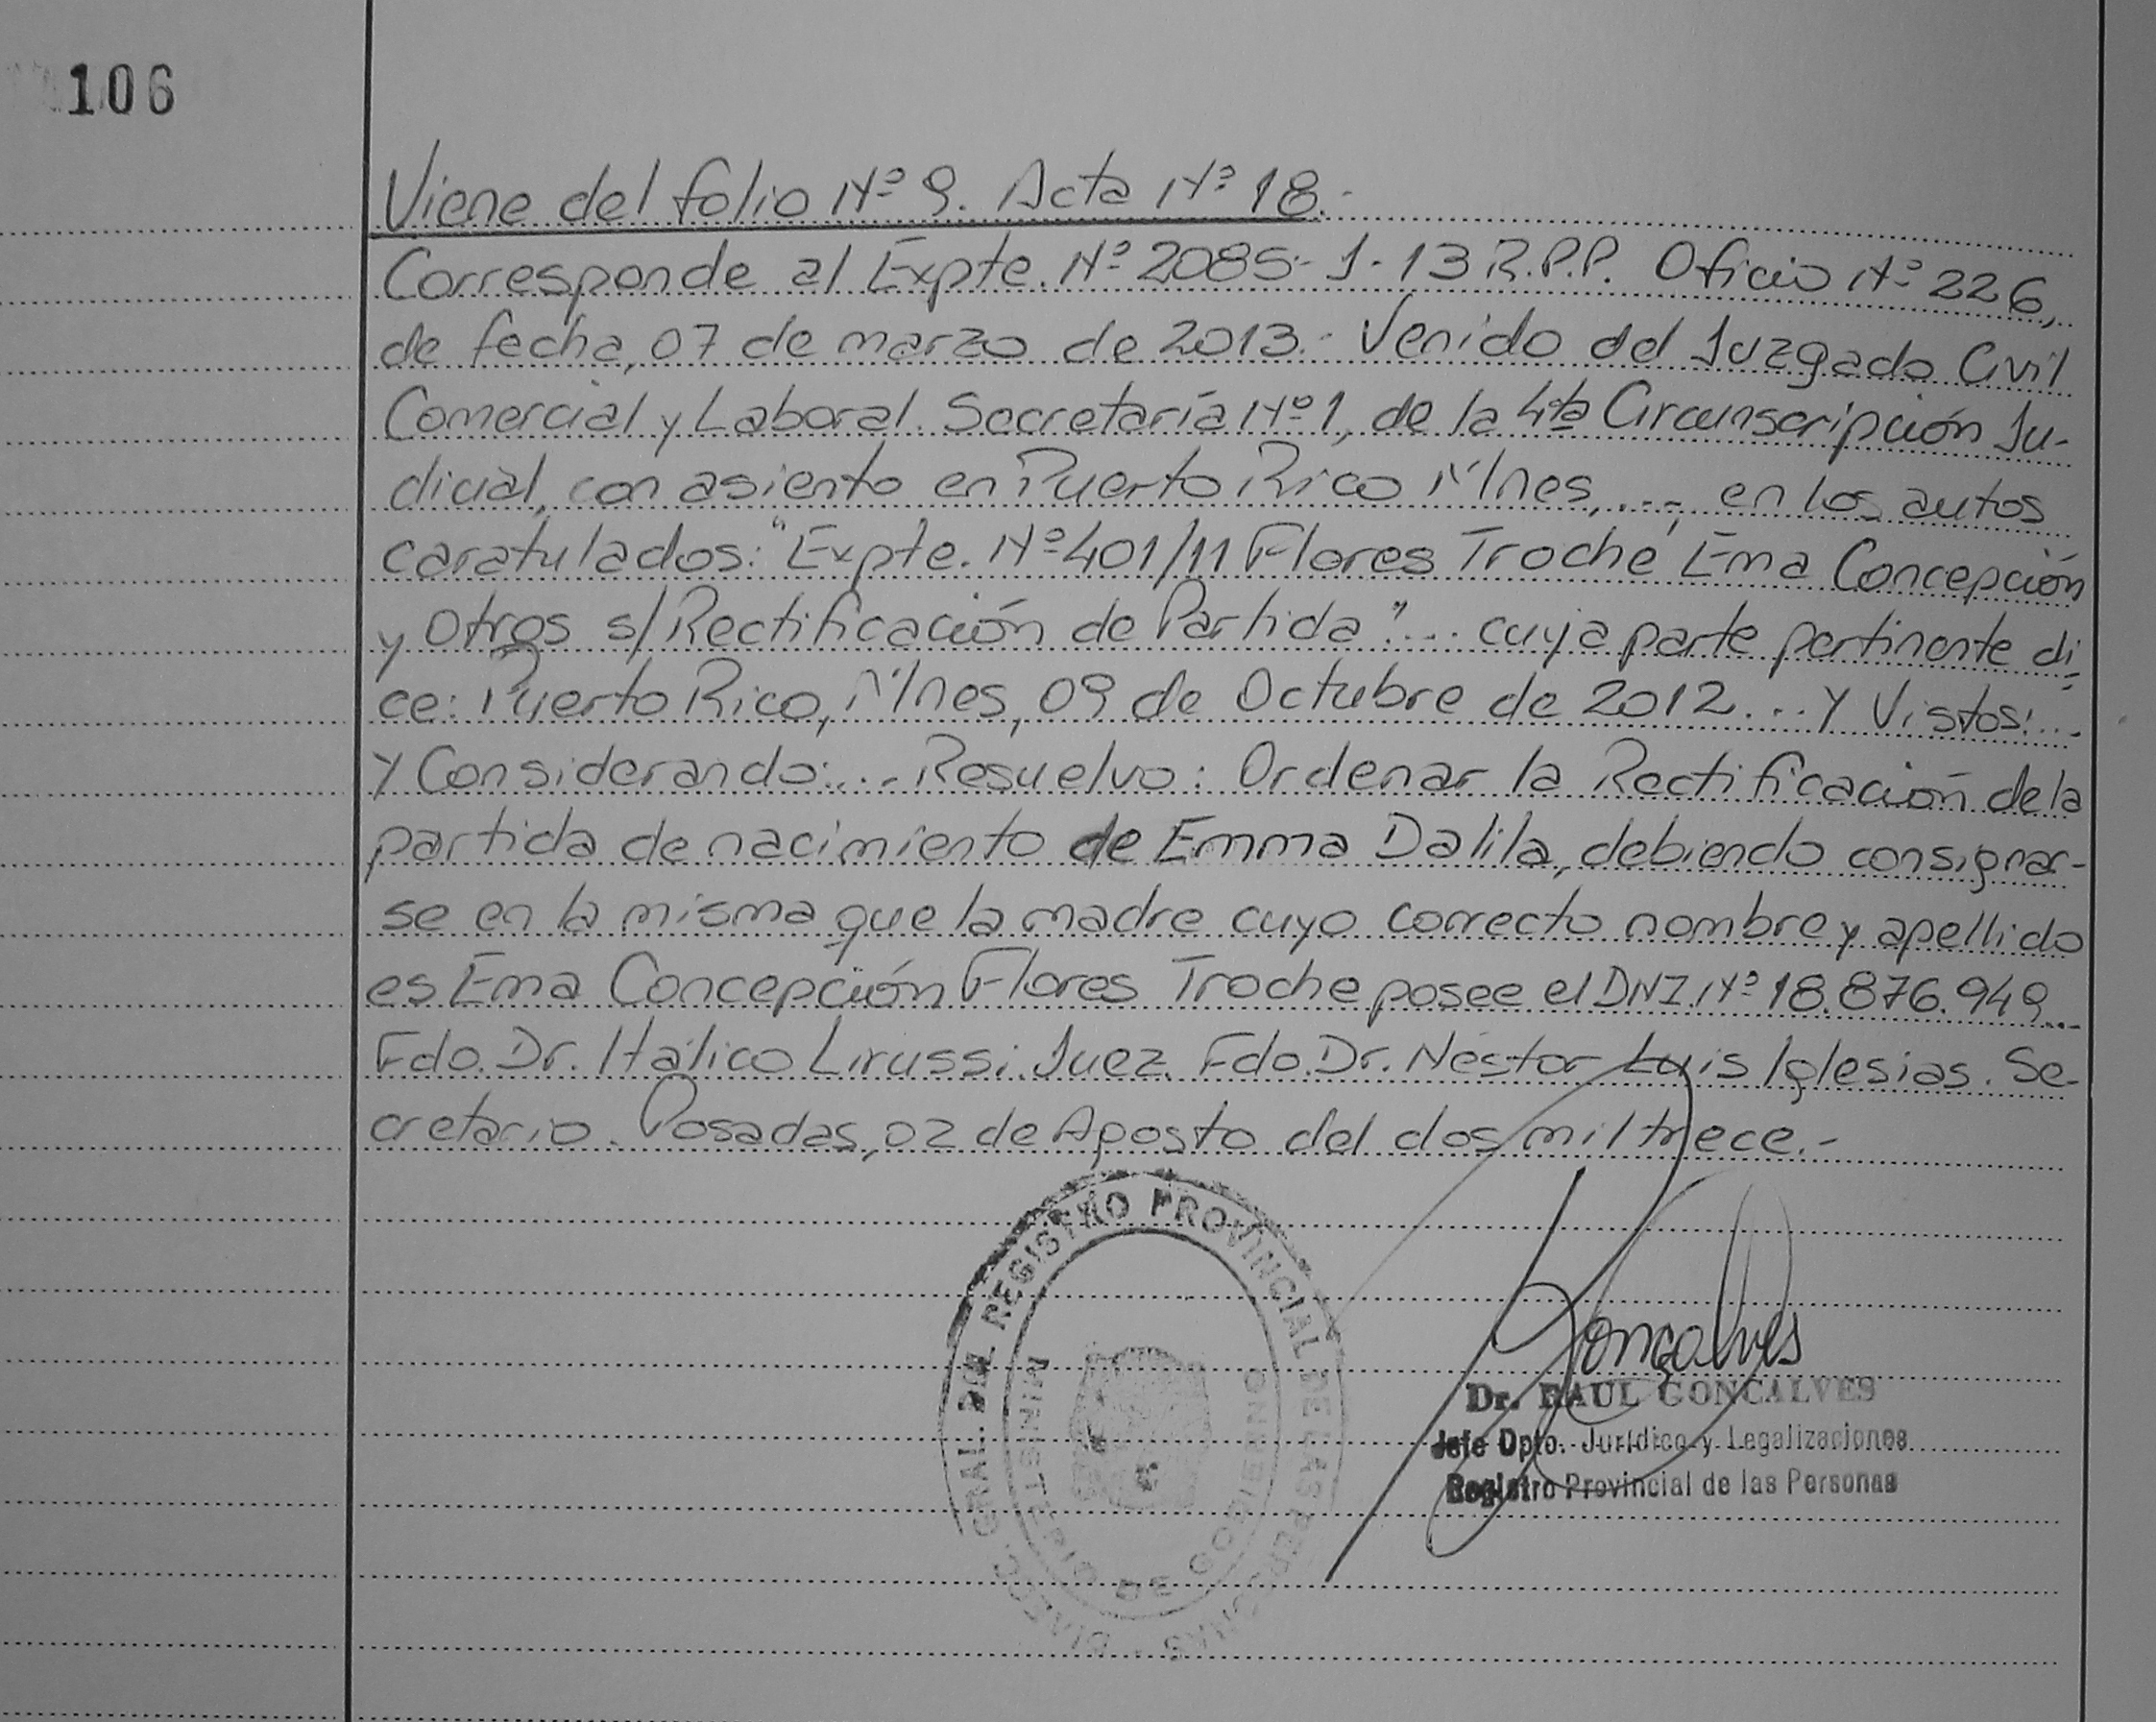 106
Viene del folio Nº 9. Acta Nº 18.-
Corresponde al Expte. Nº 2085-J-13 R.P.P. Oficio Nº 226,
de fecha, 07 de marzo de 2013.- Venido del Juzgado Civil
Comercial y Laboral. Secretaría Nº 1, de la 4ta Circunscripción Ju-
dicial, con asiento en Puerto Rico M/nes,..., en los autos
caratulados: "Expte. Nº 401/11 Flores Troche Ema Concepción
y Otros s/Rectificación de Partida"... cuya parte pertinente di-
ce: Puerto Rico, M/nes, 09 de Octubre de 2012... Y Vistos:...
Y Considerando:... Resuelvo: Ordenar la Rectificación de la
partida de nacimiento de Emma Dalila, debiendo consignar-
se en la misma que la madre cuyo correcto nombre y apellido
es Ema Concepción Flores Troche posee el DNI. Nº 18.876.949...
Fdo. Dr. Itálico Lirussi. Juez. Fdo. Dr. Néstor Luis Iglesias. Se-
cretario. Posadas, 02 de Agosto del dos mil trece.-
DIRECC. GRAL. DEL REGISTRO PROVINCIAL DE LAS PERSONAS
MINISTERIO DE GOBIERNO
Gonçalves
Dr. RAUL GONCALVES
Jefe Dpto. Jurídico y Legalizaciones
Registro Provincial de las Personas